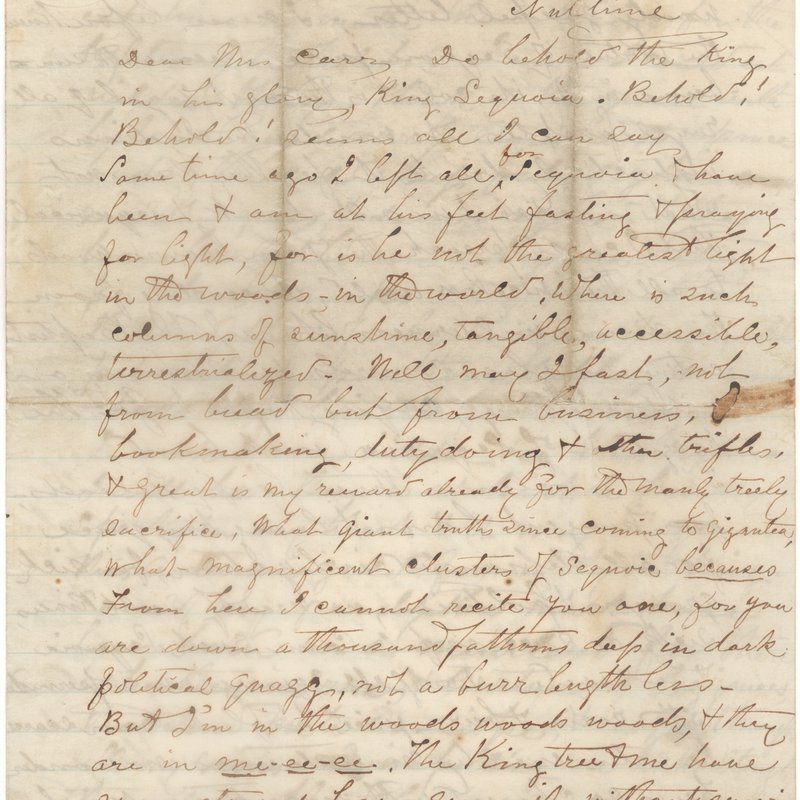 Nut time
Dear Mrs Carr Do behold the King
in his glory, King Sequoia. Behold!
Behold! seems all I can say
Some time ago I left all for Sequoia & have
been & am at his feet fasting & praying
for light, for is he not the greatest light
in the woods - in the world. Where is such
columns of sunshine, tangible, accessible,
terrestrialized - Well may I fast, not
from bread but from business,
bookmaking, duty doing & other trifles,
& great is my reward already for the manly treely
sacrifice, What giant truths since coming to gigantea,
What magnificent clusters of Sequoic becauses
From here I cannot recite you one, for you
are down a thousand fathoms deep in dark
political quagg, not a burr length less -
But I'm in the woods woods woods, & they
are in me-ee-ee. The King tree & me have